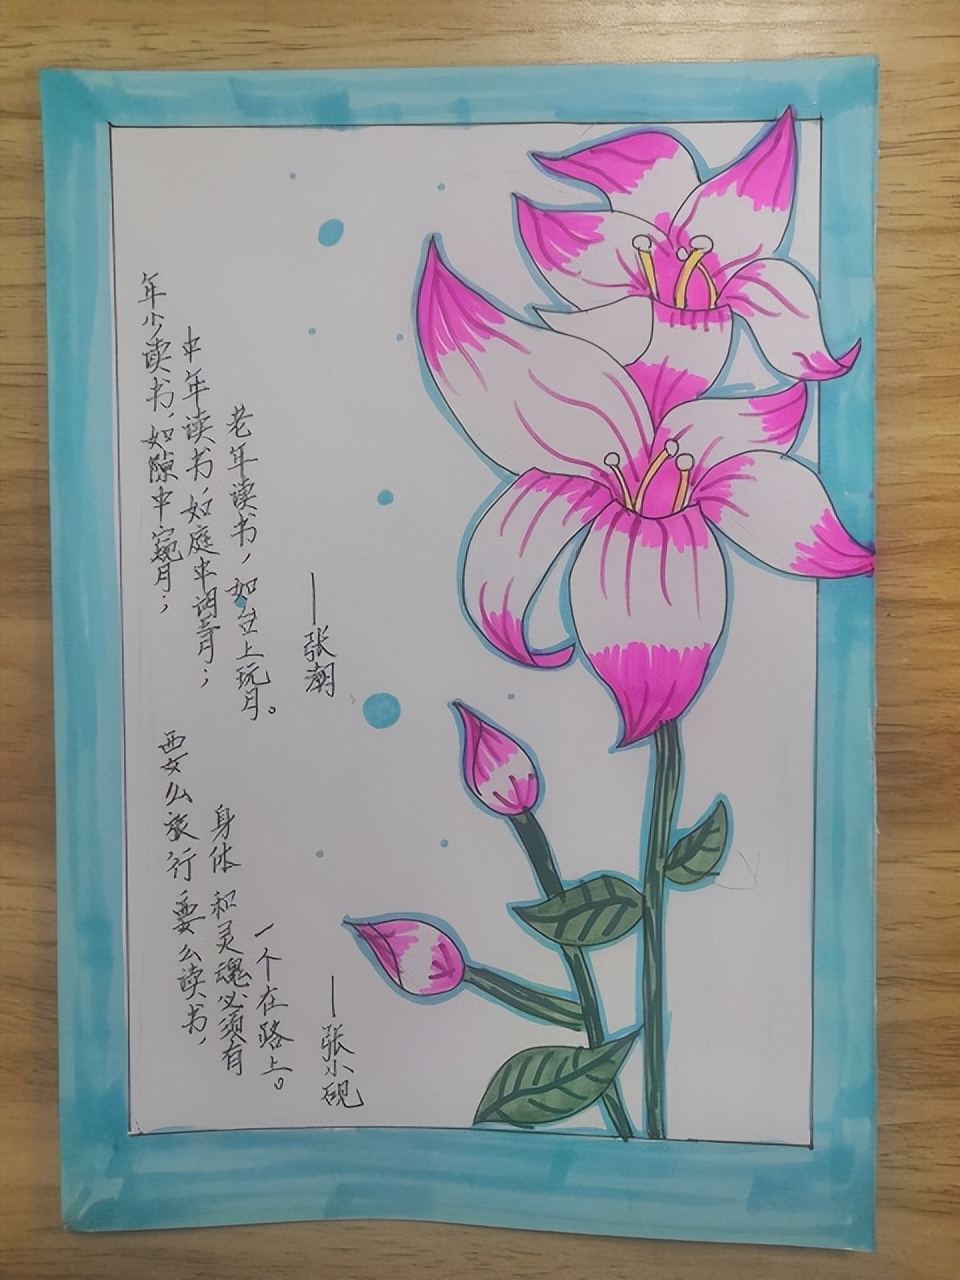 年少读书，如隙中窥月；
中年读书，如庭中望月；
老年读书，如台上玩月。
——张潮
要么旅行要么读书，
身体和灵魂必须有
一个在路上。
——张小砚